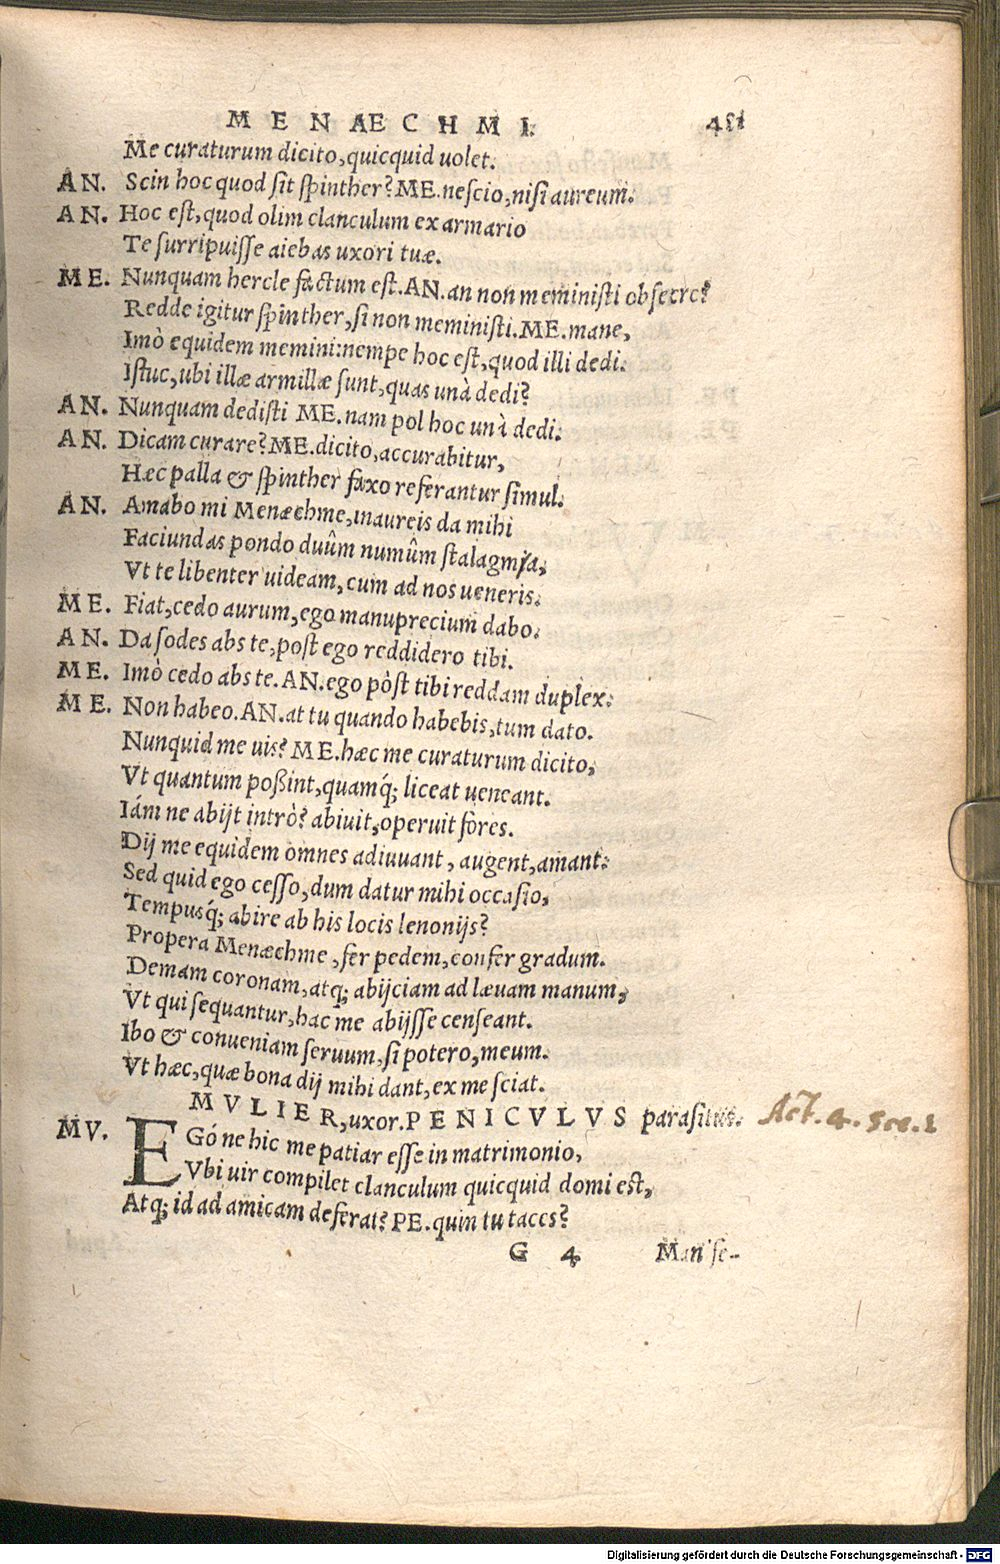 MENAECHMI.
Me curaturum dicito, quicquid uolet.
AN. Scin hoc quod sit spinther? ME. nescio, nisi aureum.
AN. Hoc est, quod olim clanculum ex armario
Te surripuisse aiebas uxori tuæ.
ME. Nunquam hercle factum est. AN. an non meministi obsecro?
Redde igitur spinther, si non meministi. ME. mane,
Imò equidem memini: nempe hoc est, quod illi dedi.
Istuc, ubi illæ armillæ sunt, quas unà dedi?
AN. Nunquam dedisti ME. nam pol hoc unà dedi.
AN. Dicam curare? ME. dicito, accurabitur,
Hæc palla & spinther faxo referantur simul.
AN. Amabo mi Menæchme, inaureis da mihi
Faciundas pondo duûm numûm stalagmia,
Vt te libenter uideam, cum ad nos ueneris.
ME. Fiat, cedo aurum, ego manuprecium dabo.
AN. Da sodes abs te, post ego reddidero tibi.
ME. Imò cedo abs te. AN. ego pòst tibi reddam duplex.
ME. Non habeo. AN. at tu quando habebis, tum dato.
Nunquid me uis? ME. hæc me curaturum dicito,
Vt quantum poßint, quamq́; liceat ueneant.
Iám ne abijt intrò? abiuit, operuit fores.
Dij me equidem omnes adiuuant, augent, amant.
Sed quid ego cesso, dum datur mihi occasio,
Tempusq́; abire ab his locis lenonijs?
Propera Menæchme, fer pedem, confer gradum.
Demam coronam, atq; abijciam ad læuam manum,
Vt qui sequantur, hac me abijsse censeant.
Ibo & conueniam seruum, si potero, meum.
Vt hæc, quæ bona dij mihi dant, ex me sciat.
MVLIER, uxor. PENICVLVS parasitus. Act. 4. Sce. 1
MV. EGó ne hic me patiar esse in matrimonio,
Vbi uir compilet clanculum quicquid domi est,
Atq; id ad amicam deferat? PE. quin tu taces?
G 4 Manife-
Digitalisierung gefördert durch die Deutsche Forschungsgemeinschaft - DFG